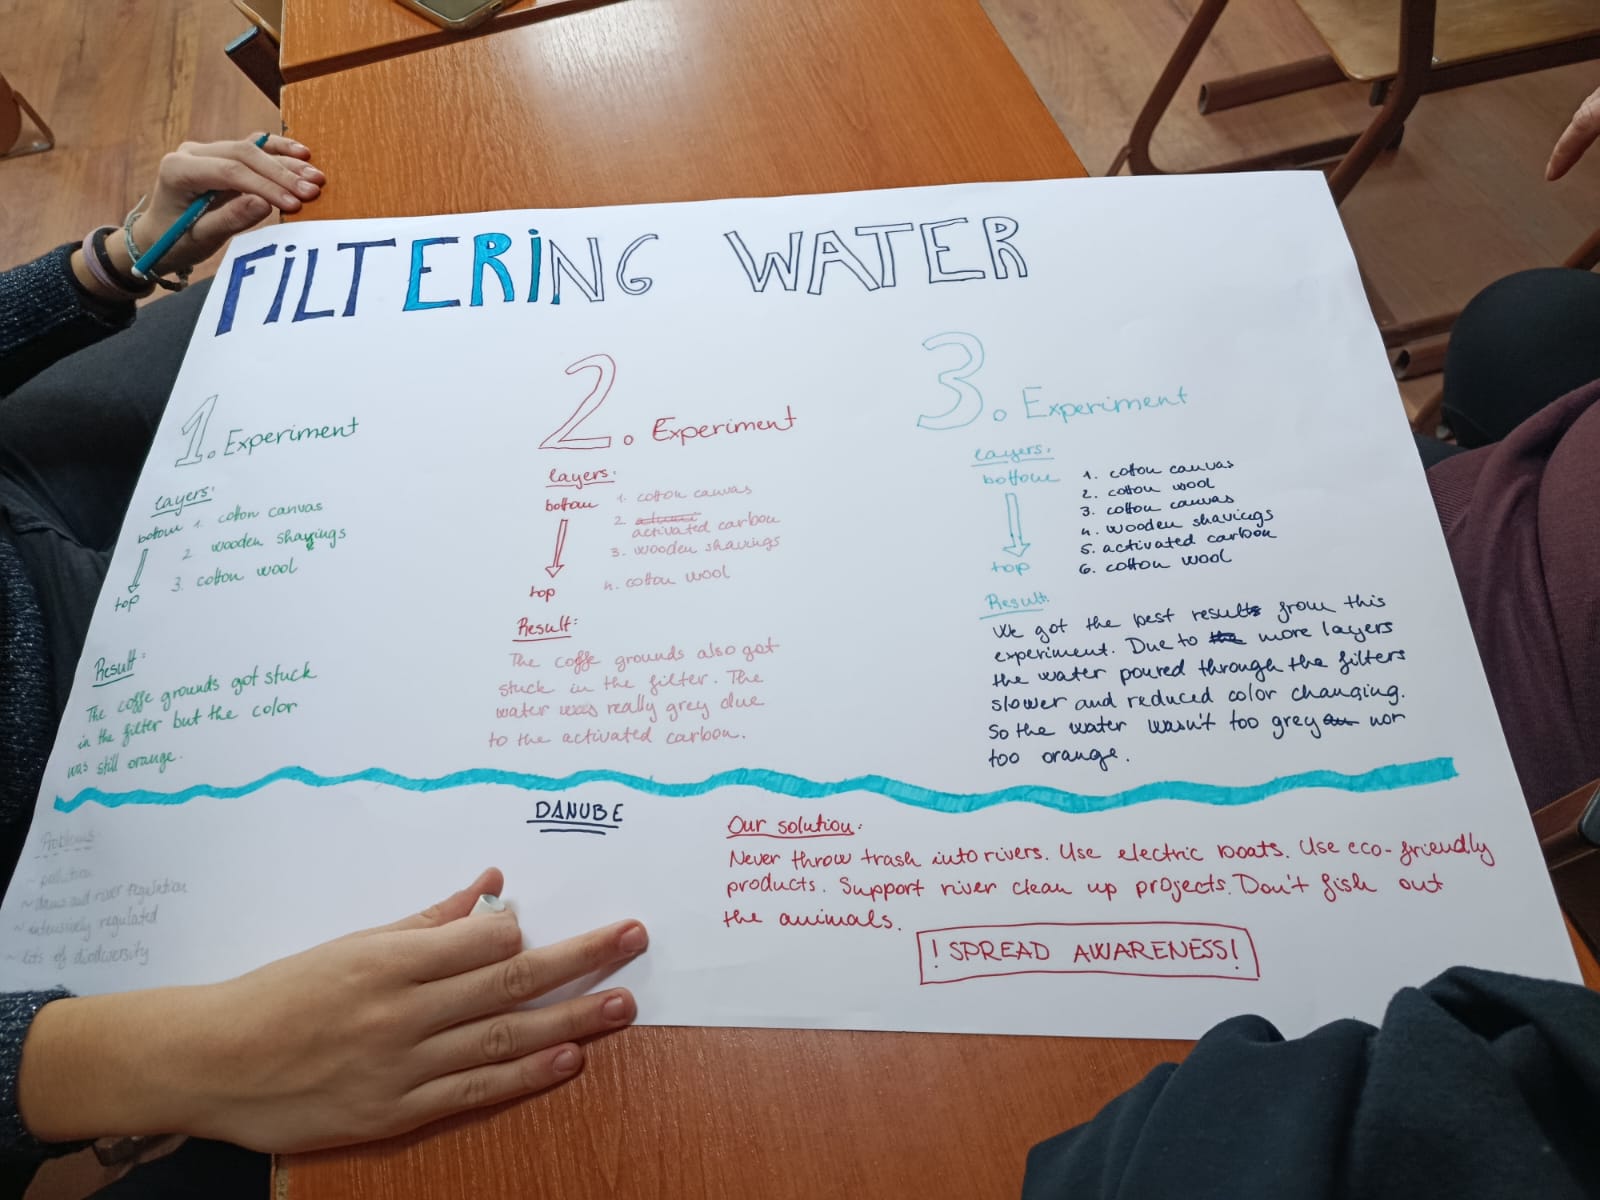 FiLTERiNG WATER
1. Experiment
Layers:
bottom
top
1. cotton canvas
2 wooden shavings
3. cotton wool
Result:
The coffe grounds got stuck
in the filter but the color
was still orange.
2. Experiment
Layers:
bottom
top
1. cotton canvas
2.
activated carbon
3. wooden shavings
4. cotton wool
Result:
The coffe grounds also got
stuck in the filter. The
water was really grey due
to the activated carbon.
3. Experiment
Layers:
bottom
top
1. cotton canvas
2. cotton wool
3. cotton canvas
4. wooden shavings
5. activated carbon
6. cotton wool
Result:
We got the best results from this
experiment. Due to the more layers
the water poured through the filters
slower and reduced color changing.
So the water wasn't too grey nor
too orange.
DANUBE
Problems:
~ pollution
~ dams and river regulation
~ intensively regulated
~ lots of biodiversity
Our solution:
Never throw trash into rivers. Use electric boats. Use eco-friendly
products. Support river clean up projects. Don't fish out
the animals.
! SPREAD AWARENESS!